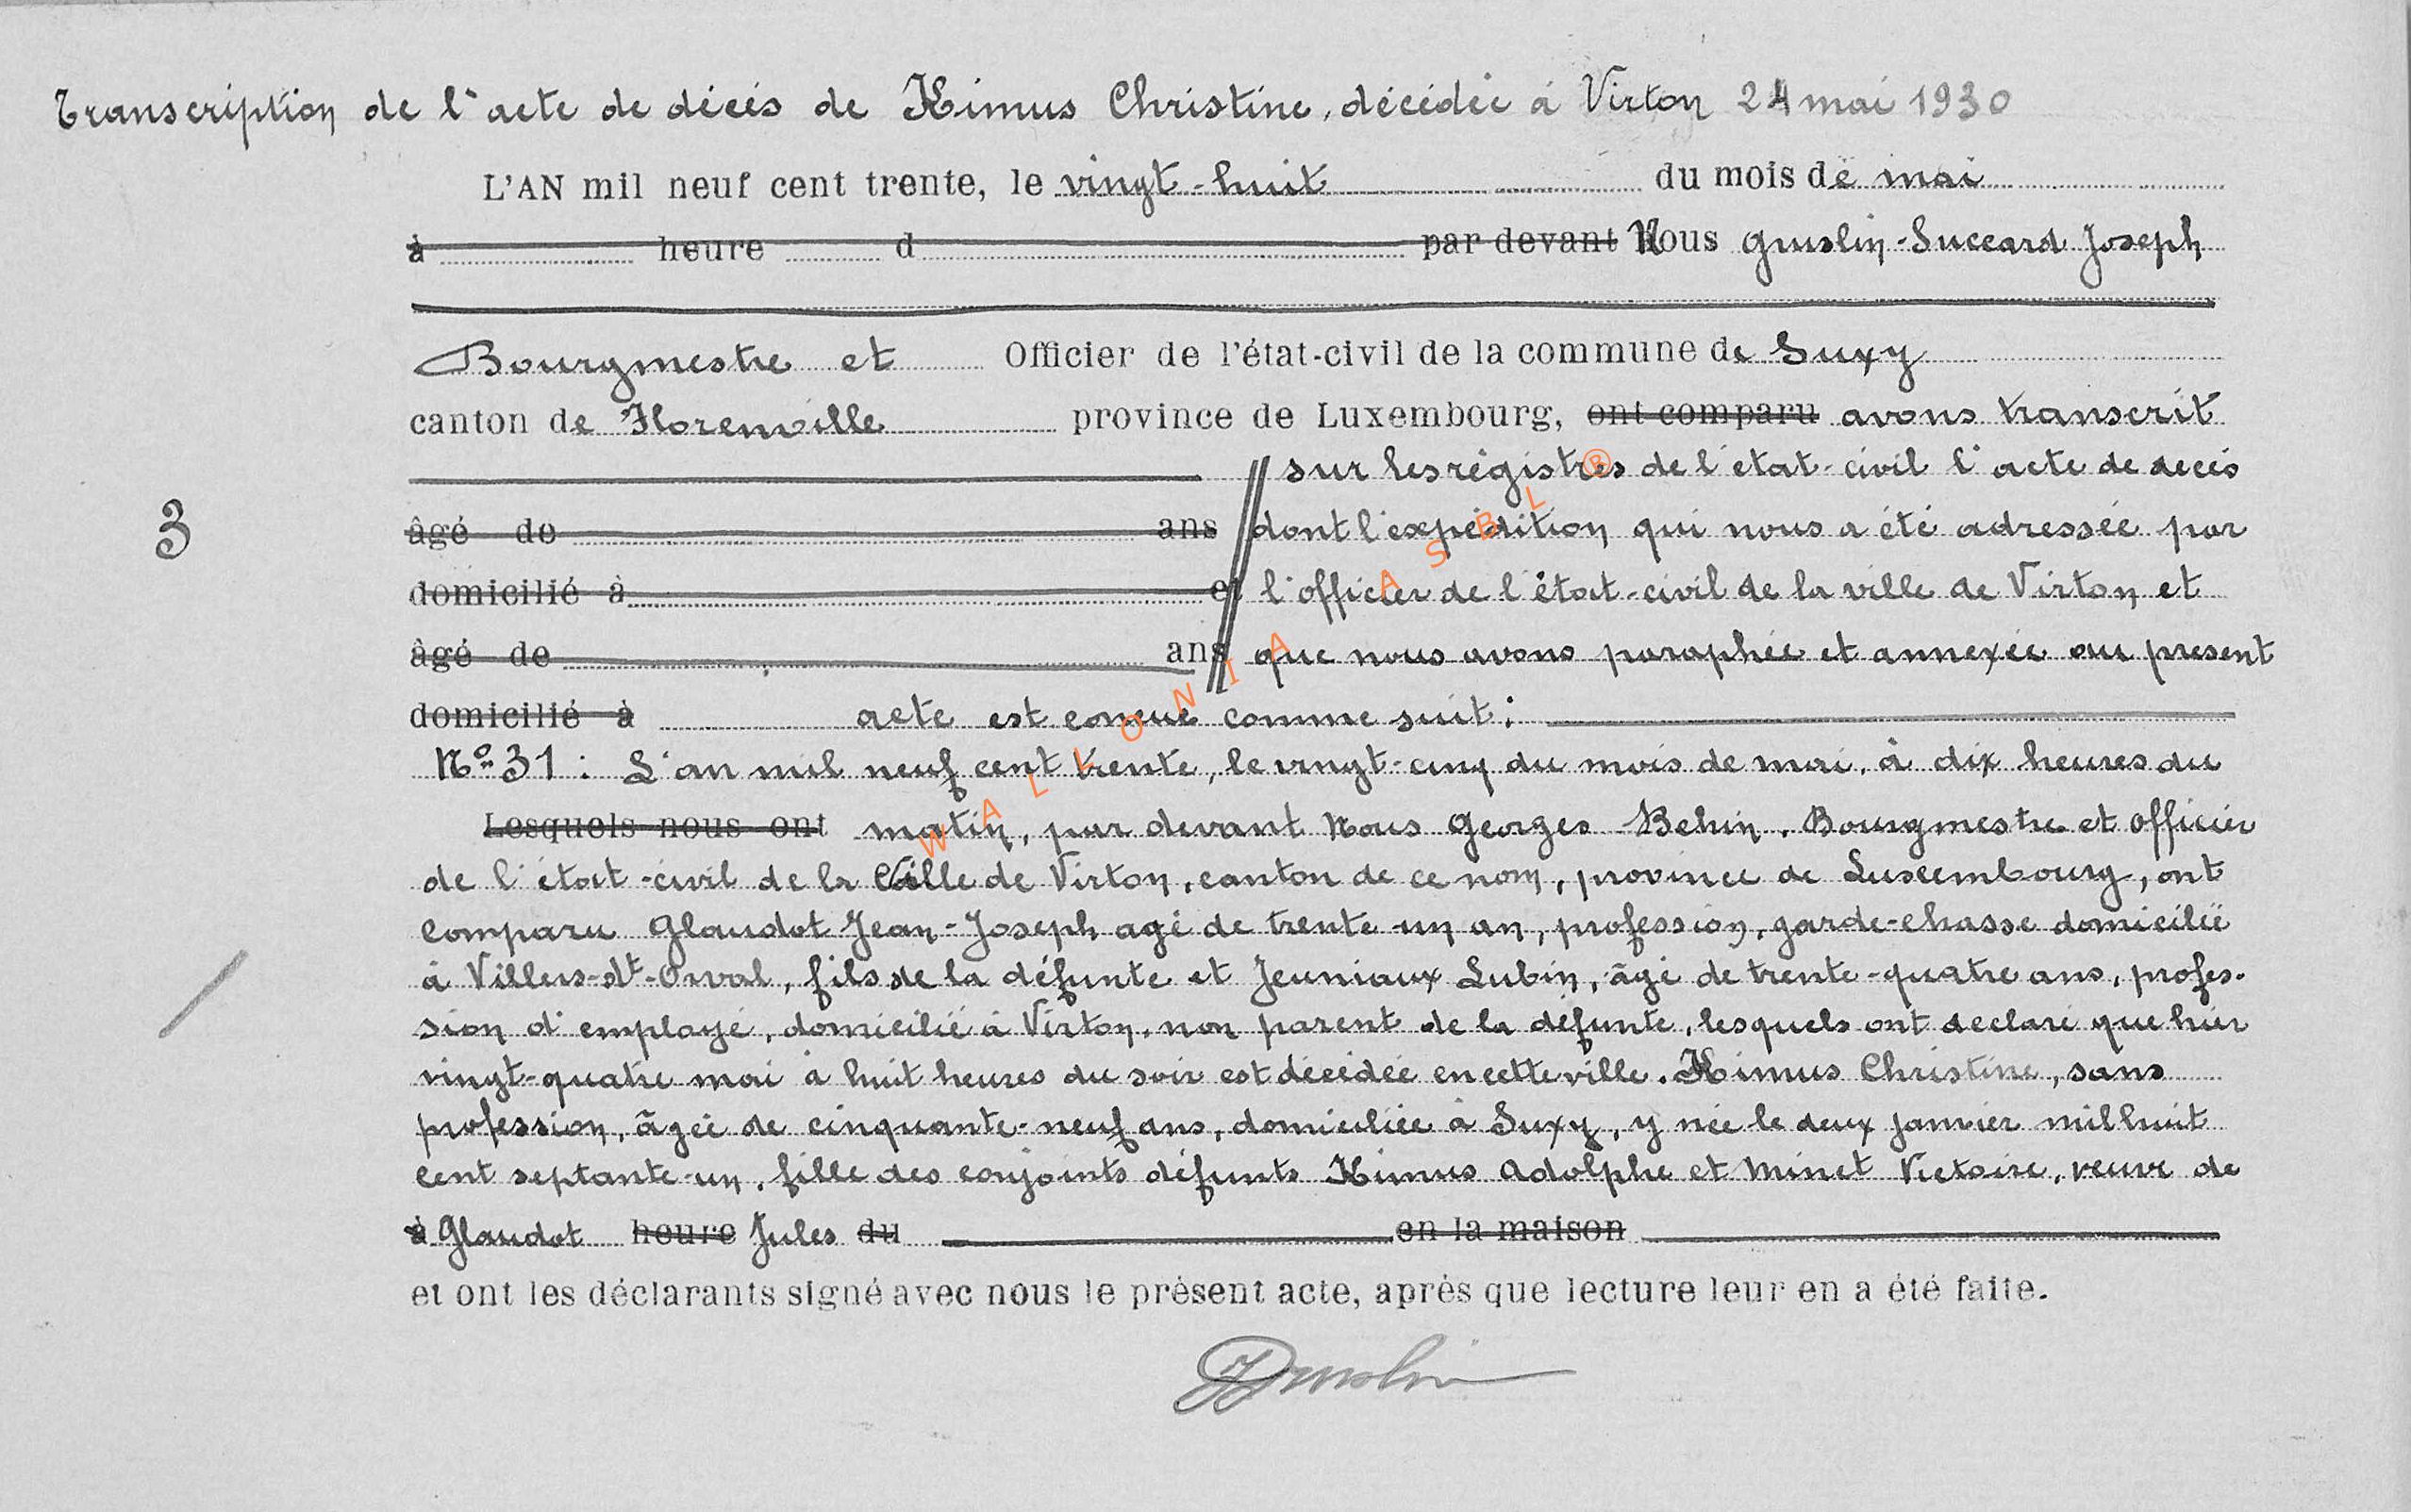 Transcription de l'acte de décès de Himus Christine, décédée à Virton 24 mai 1930
L'AN mil neuf cent trente, le vingt-huit du mois de mai
à heure d par devant Nous Gruslin-Succard Joseph
Bourgmestre et Officier de l'état-civil de la commune de Suxy
canton de Florenville province de Luxembourg, ont comparu avons transcrit
sur les régistres de l'etat-civil l'acte de deces
âgé de ans dont l'expédition qui nous a été adressée par
domicilié à et l'officier de l'état-civil de la ville de Virton et
âgé de ans que nous avons paraphée et annexée au present
domicilié à acte est conçue comme suit :
3
N° 31 : L'an mil neuf cent trente, le vingt-cinq du mois de mai, à dix heures du
Lesquels nous ont matin, par devant Nous Georges Behin, Bourgmestre et officier
de l'état-civil de la Ville de Virton, canton de ce nom, province de Luxembourg, ont
comparu Glaudot Jean-Joseph agé de trente-un an, profession, garde-chasse domicilié
à Villers-dt-Orval, fils de la défunte et Jeuniaux Lubin, âgé de trente-quatre ans, profes-
sion d'employé, domicilié à Virton, non parent de la défunte, lesquels ont declaré que hier
vingt-quatre mai à huit heures du soir est décédée en cette ville. Himus Christine, sans
profession, âgée de cinquante-neuf ans, domiciliée à Suxy, y née le deux janvier mil huit
cent septante-un, fille des conjoints défunts Himus Adolphe et Minet Victoire, veuve de
à Glaudot heure Jules du en la maison
et ont les déclarants signé avec nous le présent acte, après que lecture leur en a été faite.
JGruslin
WALLONIA ASBL ®